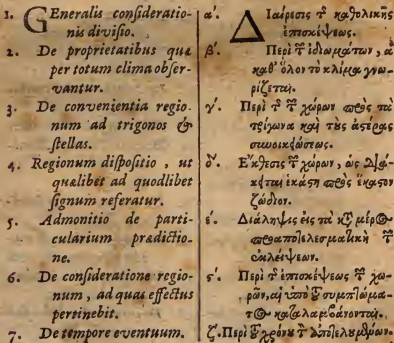 1. Generalis consideratio-
nis divisio.
2. De proprietatibus quæ
per totum clima obser-
vantur.
3. De convenientia regio-
num ad trigonos &
stellas.
4. Regionum dispositio, ut
quælibet ad quodlibet
signum referatur.
5. Admonitio de parti-
cularium prædictio-
ne.
6. De consideratione regio-
num, ad quas effectus
pertinebit.
7. De tempore eventuum.
α΄. Διαίρεσις τ̃ καθολικῆς
ἐπισκέψεως.
β΄. Περὶ τ̃ ἰδιωμάτων, ἃ
καθ' ὅλον τὸ κλίμα γνω-
ρίζεται.
γ΄. Περὶ τ̃ τ̃ χώρων πρὸς τὰ
τρίγωνα καὶ τὰς ἀστέρας
συνοικειώσεως.
δ΄. Ἔκθεσις τ̃ χώρων, ὡς διά-
κειται ἑκάστη πρὸς ἕκαστον
ζώδιον.
ε΄. Διάληψις εἰς τὰ κατὰ μέρος
προαποτελεσματικὴ τ̃
ἐκλείψεων.
ς΄. Περὶ τ̃ ἐπισκέψεως τ̃ χω-
ρῶν, αἳ ὑπὸ τοῦ συμπτώμα-
τος καταλαμβάνονται.
ζ. Περὶ τοῦ χρόνου τ̃ ἀποτελουμένων.